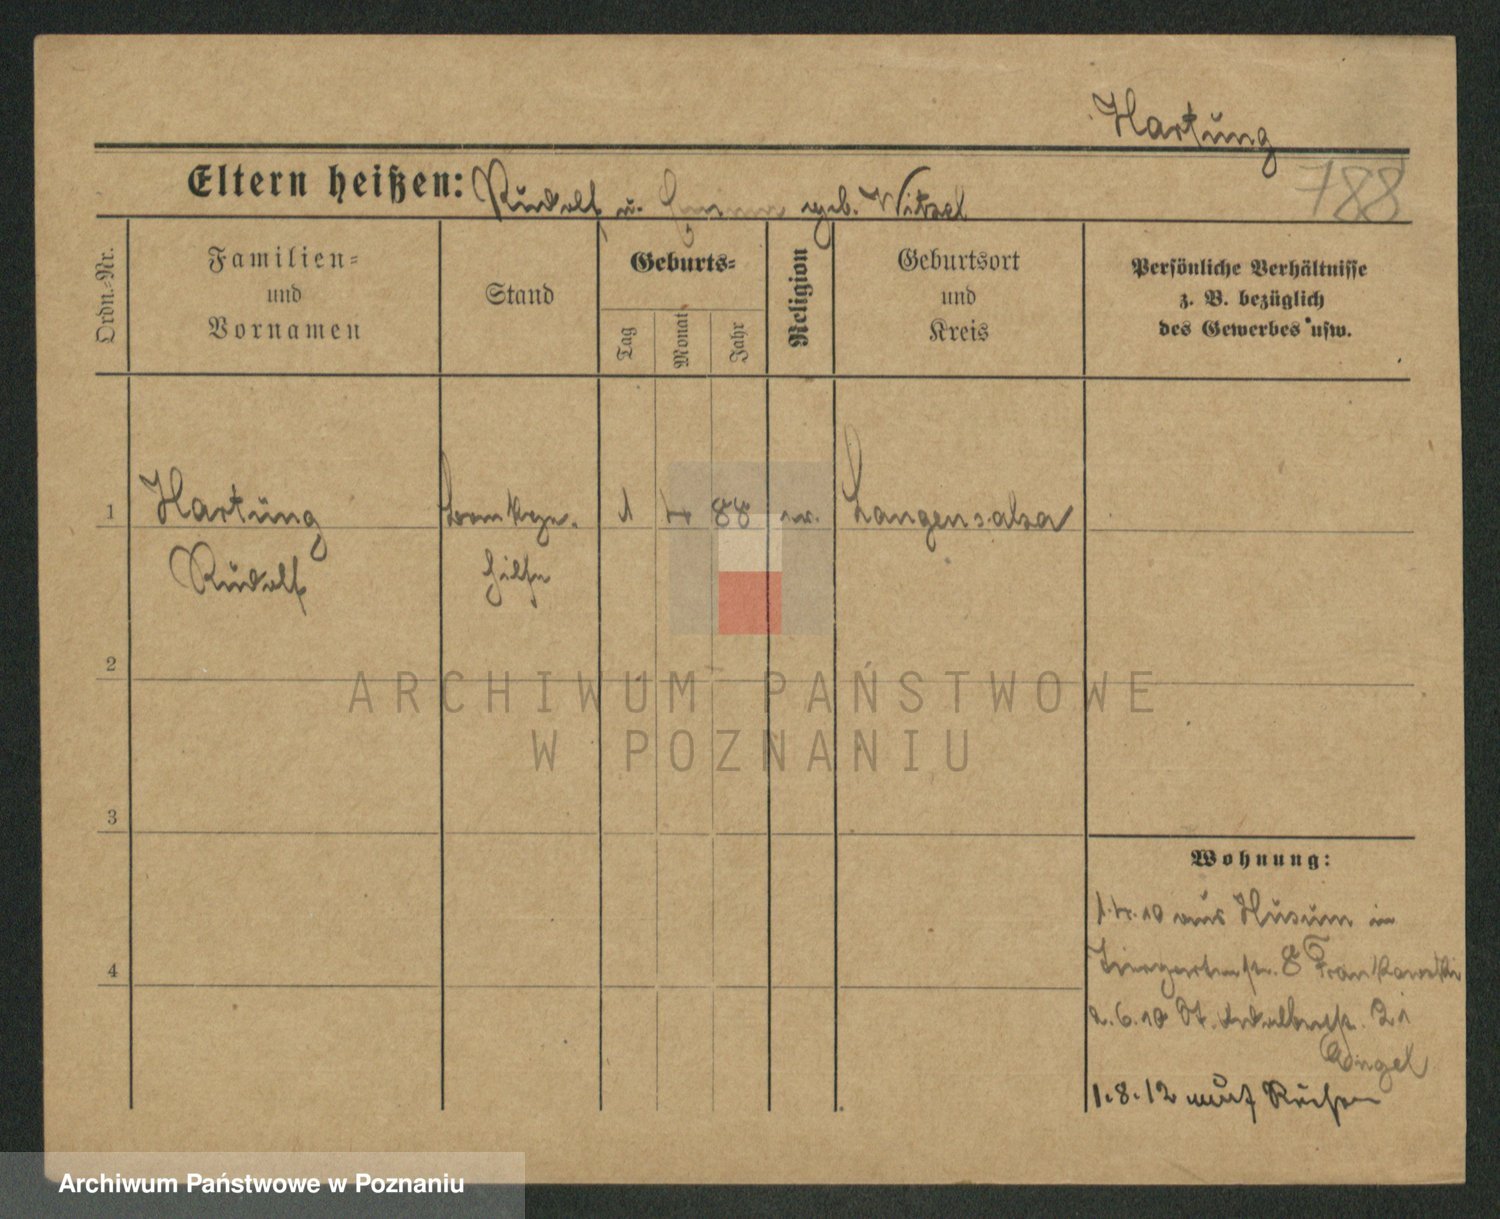 Hartung
788
Eltern heißen: Rudolf u. geb. Witzel
Ordn.-Nr.
Familien-
und
Vornamen
Stand
Geburts-
Tag
Monat
Jahr
Religion
Geburtsort
und
Kreis
Persönliche Verhältnisse
z. B. bezüglich
des Gewerbes usw.
1 Hartung 1 4 88 ev. Langensalza
Rudolf
hilfe
2
ARCHIWUM PAŃSTWOWE
W POZNANIU
3
Wohnung:
1.4.10 aus Husum in
Tiergartenstr. 8 Frankowski
4
2.6.10 21
Engel
1.8.12 nach
Archiwum Państwowe w Poznaniu